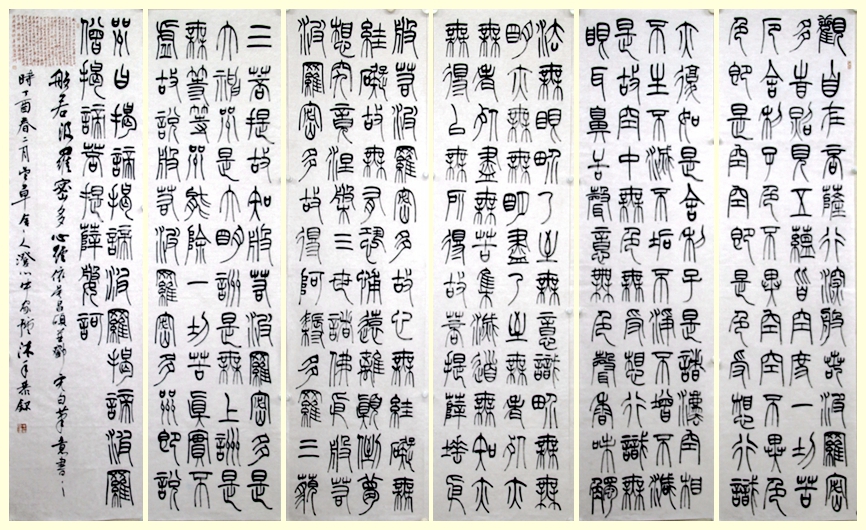 觀自在菩薩行深般若波羅密
多時照見五蘊皆空度一切苦
厄舍利子色不異空空不異色
色即是空空即是色受想行識
亦復如是舍利子是諸法空相
不生不滅不垢不淨不增不減
是故空中無色無受想行識無
眼耳鼻舌聲意無色聲香味觸
法無眼界乃至無意識界無無
明亦無無明盡乃至無老死亦
無老死盡無苦集滅道無知亦
無得以無所得故菩提薩埵依
般若波羅密多故心無罣礙無
罣礙故無有恐怖遠離顛倒夢
想究竟涅槃三世諸佛依般若
波羅密多故得阿耨多羅三藐
三菩提故知般若波羅密多是
大神咒是大明咒是無上咒是
無等等咒能除一切苦真實不
虛故說般若波羅密多咒即說
咒曰揭諦揭諦波羅揭諦波羅
僧揭諦菩提薩婆訶
般若波羅密多心經
時丁酉春二月 沐手恭錄